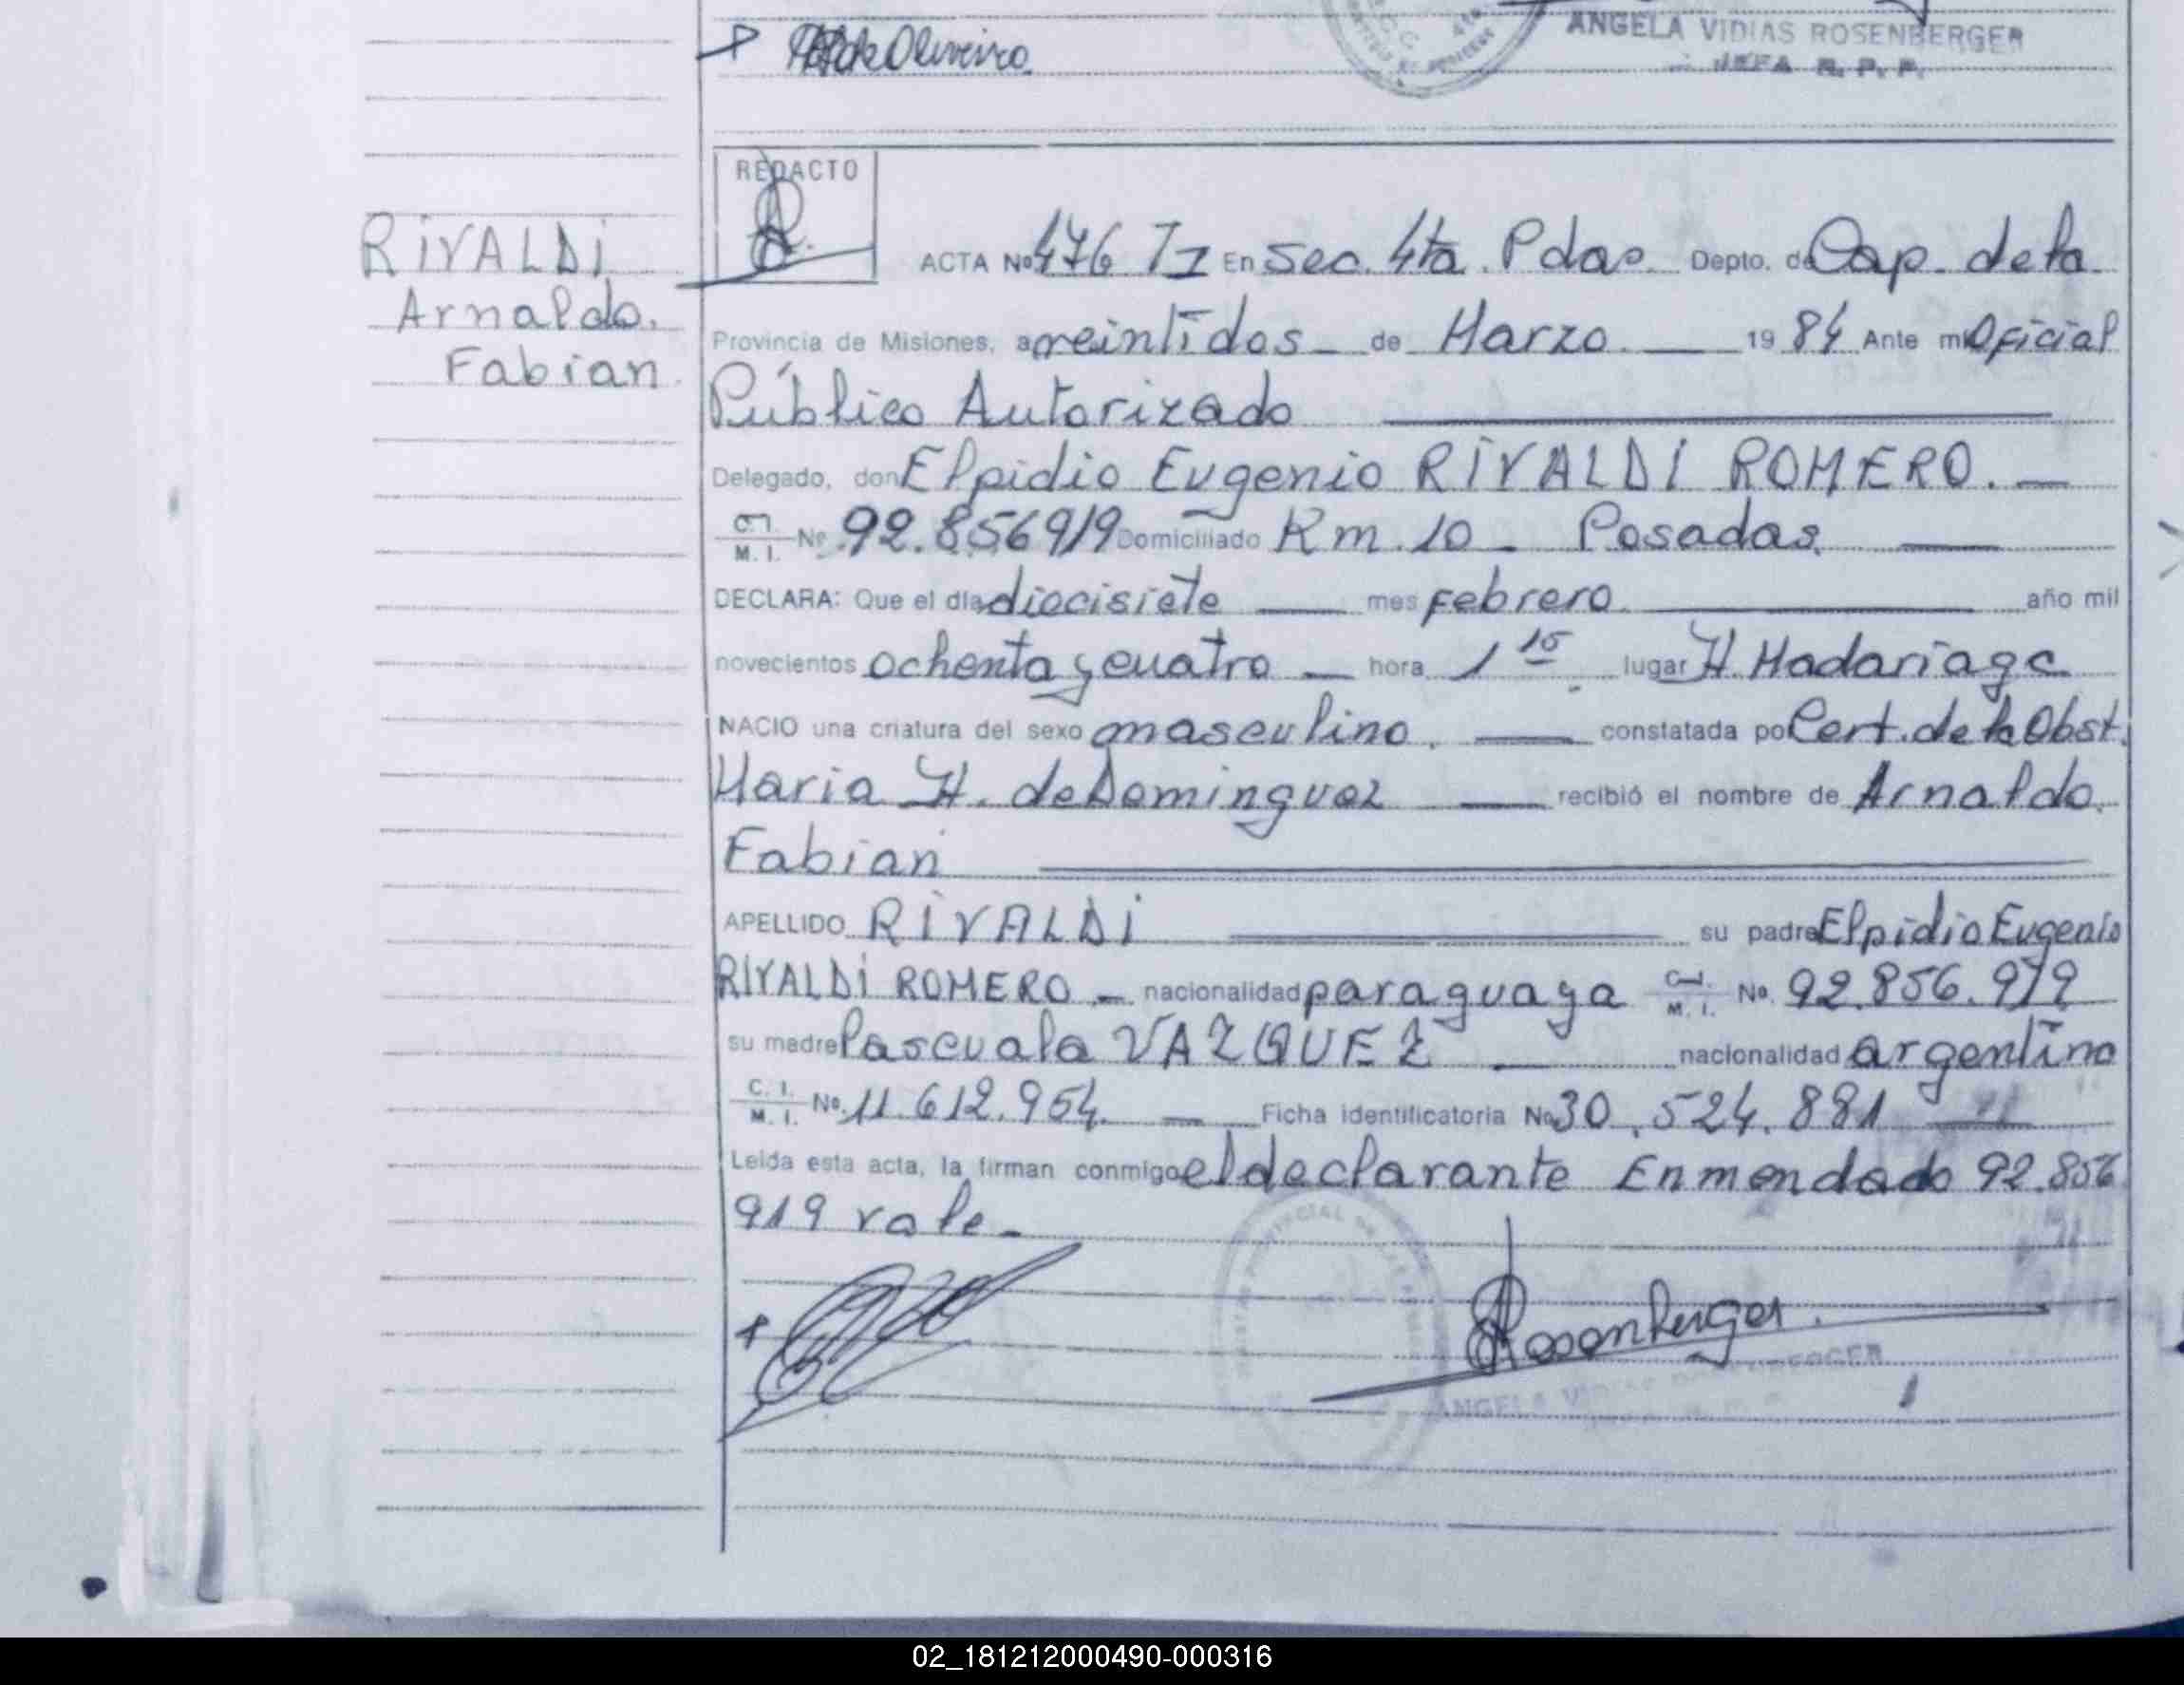 P. H de Oliveira
ANGELA VIDIAS ROSENBERGER
JEFA R. P. P.
REDACTO
RIVALDI
Arnaldo.
Fabian.
ACTA Nº 476 TI En Sec. 4ta. Pdas. Depto. de Cap. de la
Provincia de Misiones, a veintidos de Marzo. 19 84 Ante mi Oficial
Público Autorizado
Delegado, don Elpidio Eugenio RIVALDI ROMERO.
C. I. / M. I. Nº 92.856919 Domiciliado Km. 10 - Posadas.
DECLARA: Que el día diecisiete mes febrero. año mil
novecientos ochenta y cuatro hora 1 15 lugar H. Madariaga
NACIO una criatura del sexo masculino. constatada por Cert. de la Obst.
Maria H. de Dominguez recibió el nombre de Arnaldo.
Fabian
APELLIDO RIVALDI su padre Elpidio Eugenio
RIVALDI ROMERO - nacionalidad paraguaya C. I. / M. I. Nº. 92.856.919
su madre Pascuala VAZQUEZ nacionalidad argentina
C. I. / M. I. Nº. 11.612.954. Ficha identificatoria Nº 30.524.881
Leída esta acta, la firman conmigo el declarante Enmendado 92.856
919 vale.
Rosenberger.
ANGELA VIDIAS ROSENBERGER
02_181212000490-000316